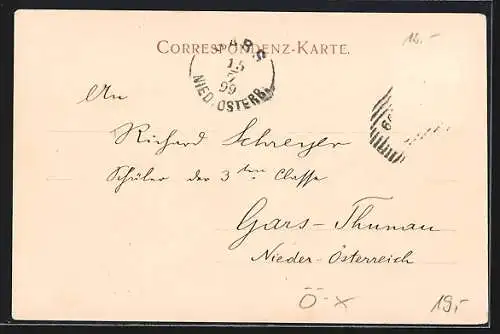 12.-
CORRESPONDENZ-KARTE.
GARS
15
7
99
NIED. ÖSTERR.
An
Richard Schreyer
Schüler der 3ten Classe
Gars-Thunau
Nieder-Österreich
Ö-X
19,-